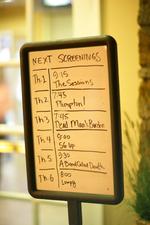 NEXT SCREENINGS
Th.1 9:15
The Sessions
Th.2 7:45
Th.3 7:45
Dead Man's Burden
Th.4 9:00
Th.5 9:30
A Band Called Death
Th.6 8:00